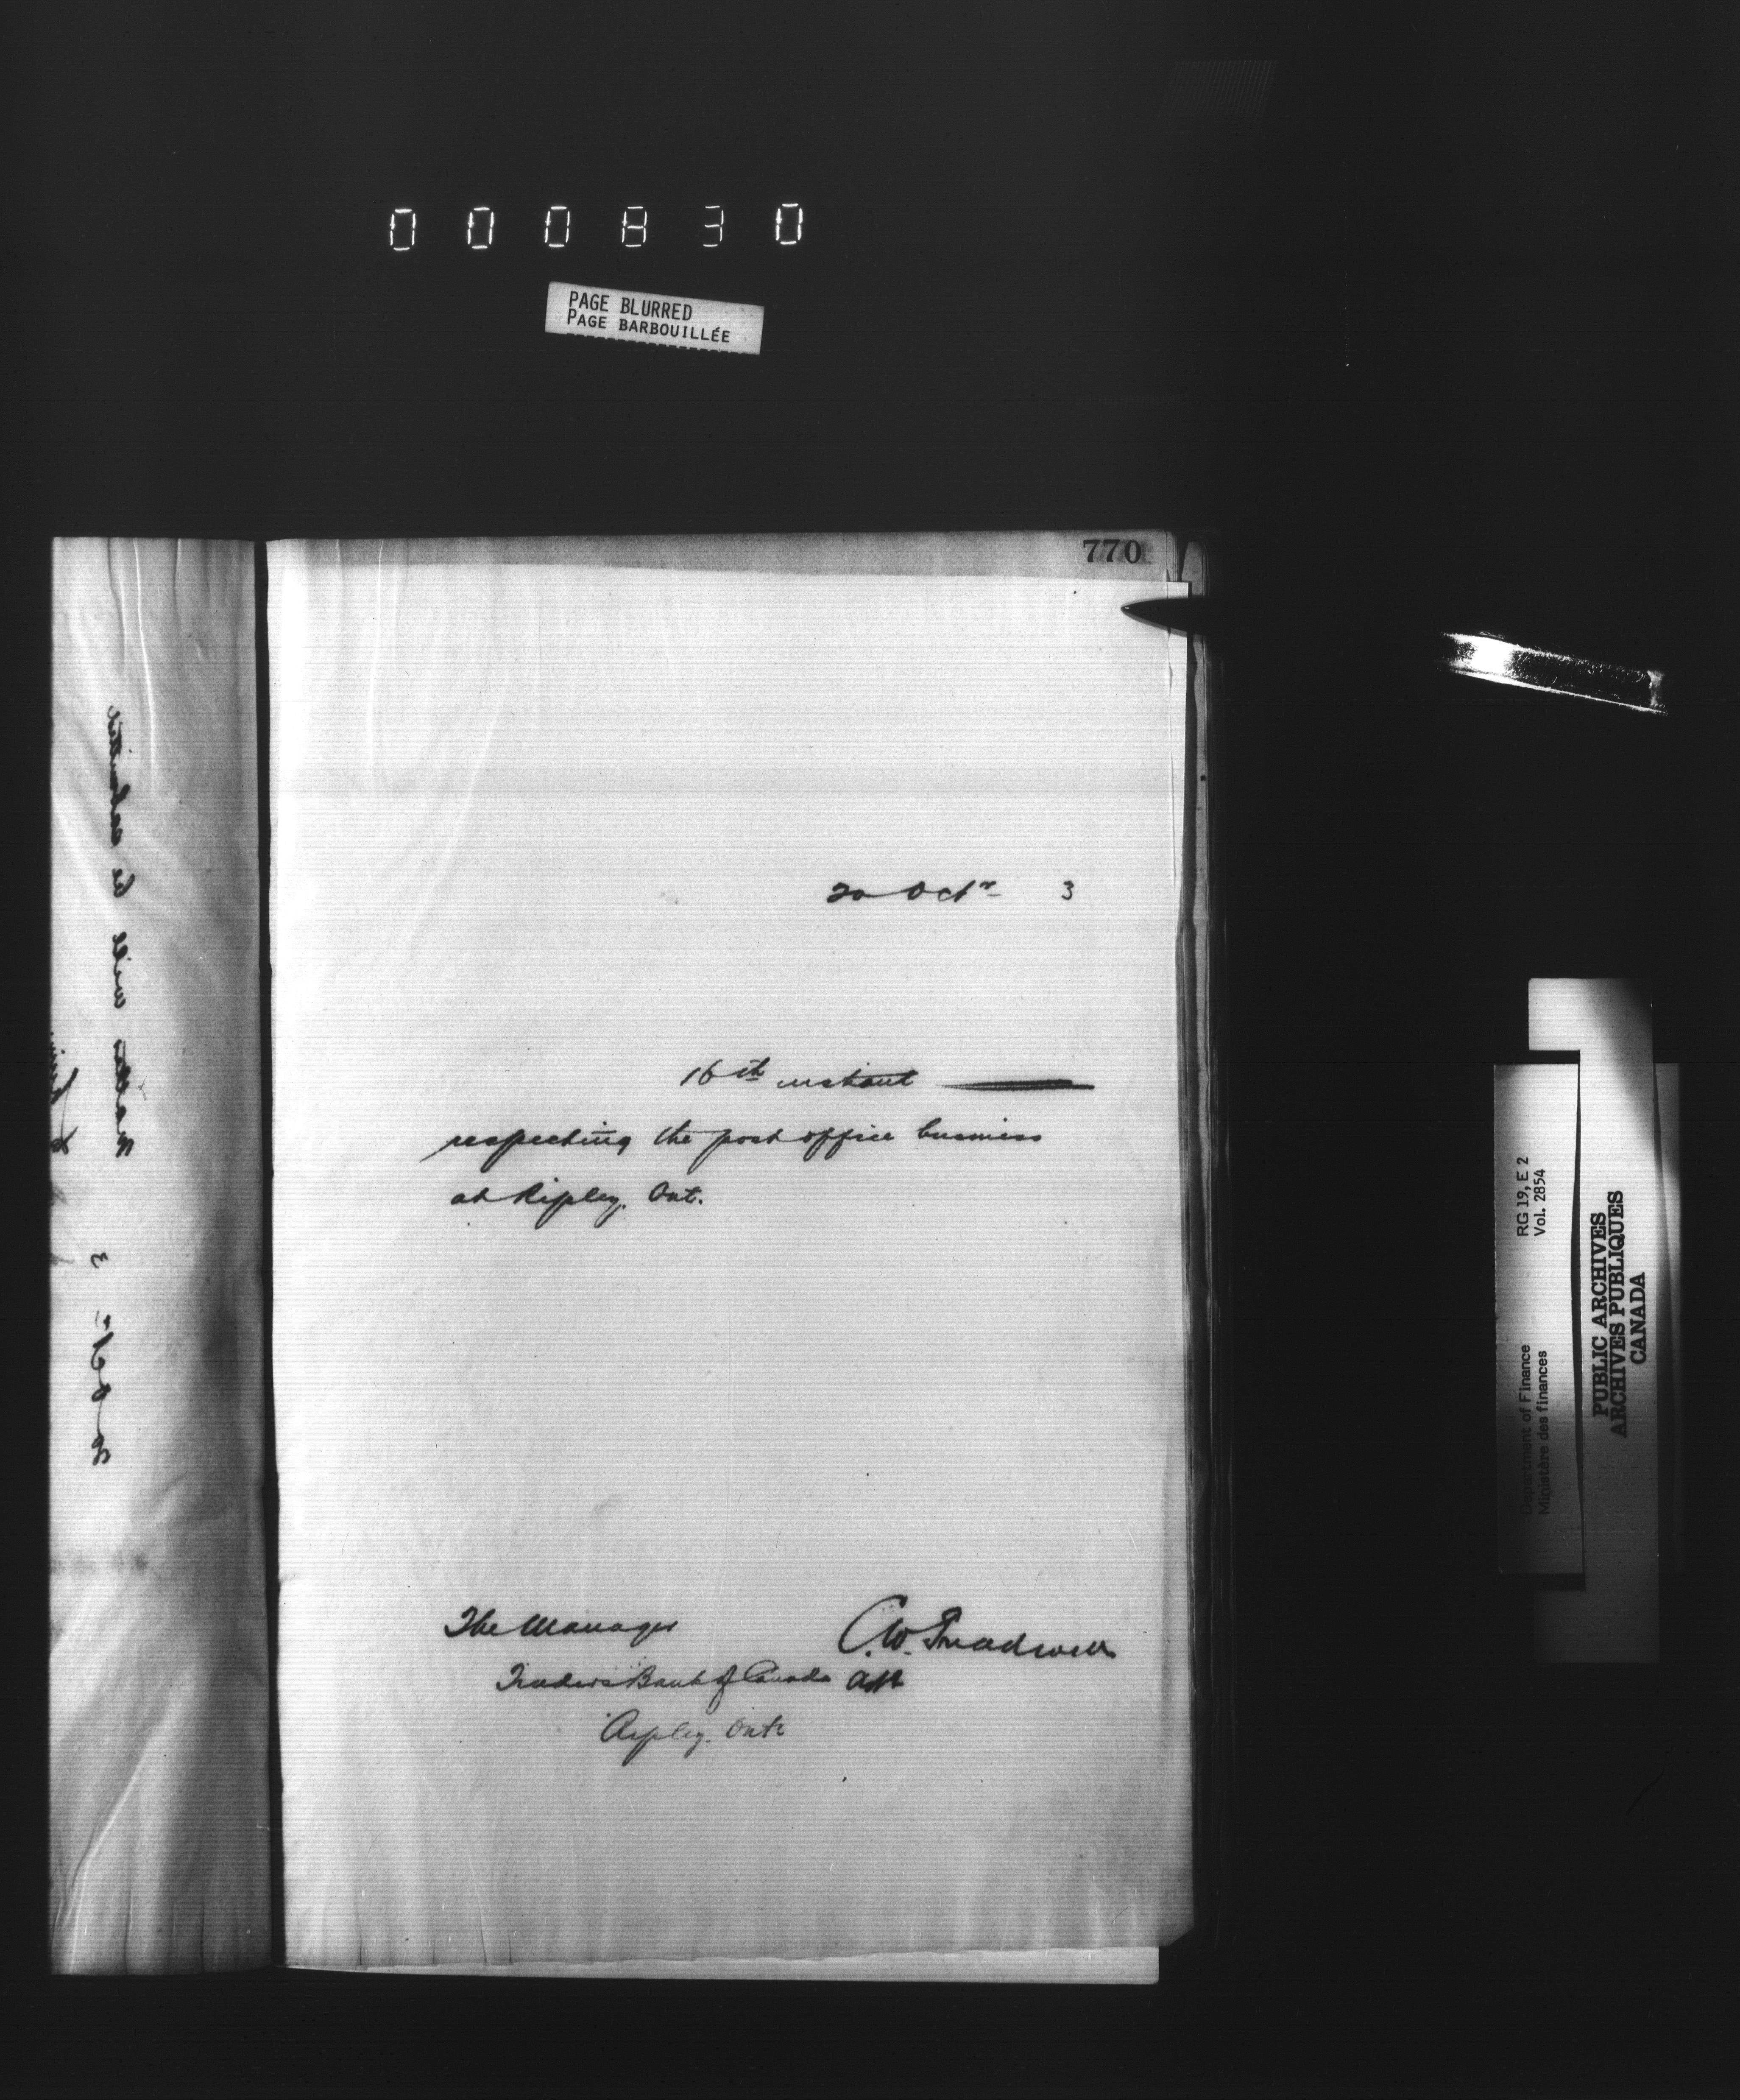 000830
PAGE BLURRED
PAGE BARBOUILLÉE
770
20 Octr 3
16th instant
respecting the post office business
at Ripley. Ont.
The Manager
C.W. Treadwell
Traders Bank of Canada
Ripley. Ont.
matter will be submitted
Octr 3
RG 19, E 2
Vol. 2854
Department of Finance
Ministère des finances
PUBLIC ARCHIVES
ARCHIVES PUBLIQUES
CANADA